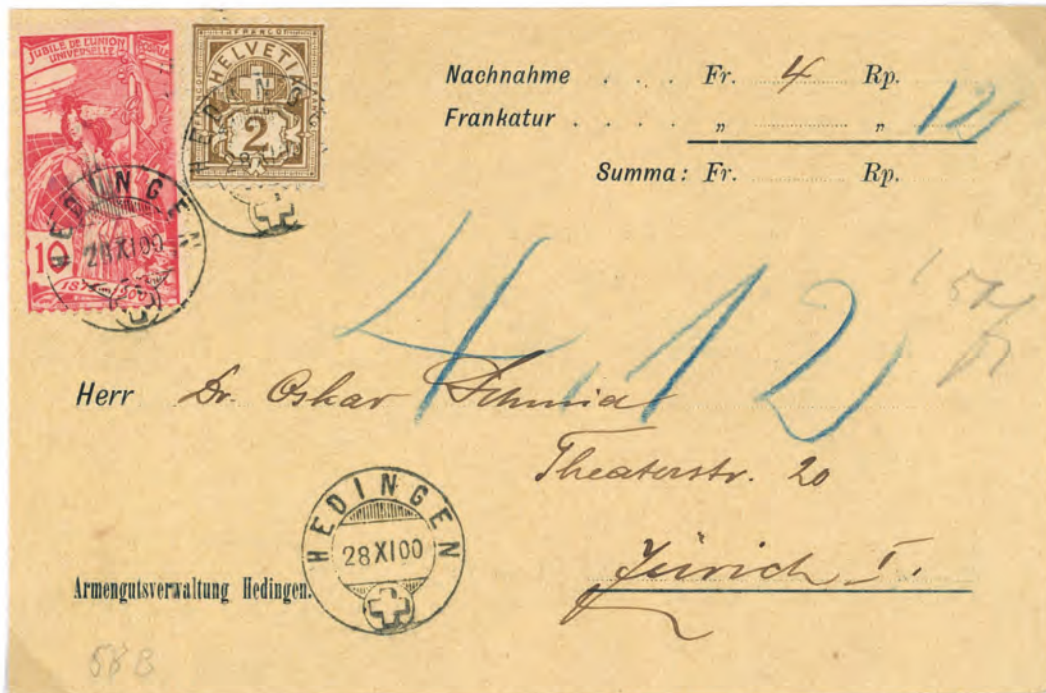 JUBILÉ DE L'UNION POSTALE
UNIVERSELLE
10
1875 1900
FRANCO
HELVETIA
2
HEDINGEN
28 XI 00
HEDINGEN
Nachnahme . . . Fr. 4 Rp.
Frankatur . . . . " " 12
Summa: Fr. Rp.
4.12
Herr Dr. Oskar Schmid
Theaterstr. 20
Zürich I.
HEDINGEN
28 XI 00
Armengutsverwaltung Hedingen.
58 B